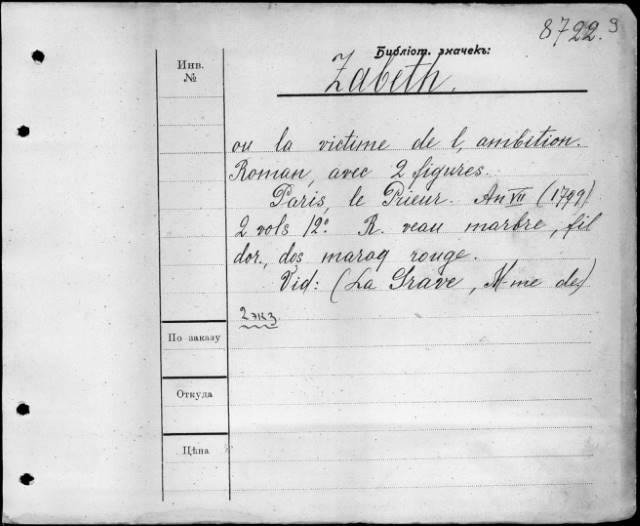 8722.9
Библіот. значекъ:
Zabeth.
Инв.
№
ou la victime de l, ambition.
Roman, avec 2 figures.
Paris, le Prieur. An VII (1799)
2 vols 12º R. veau marbre, fil
dor., dos maroq rouge.
Vid: (La Grave, M-me de)
2 экз
По заказу
Откуда
Цѣна